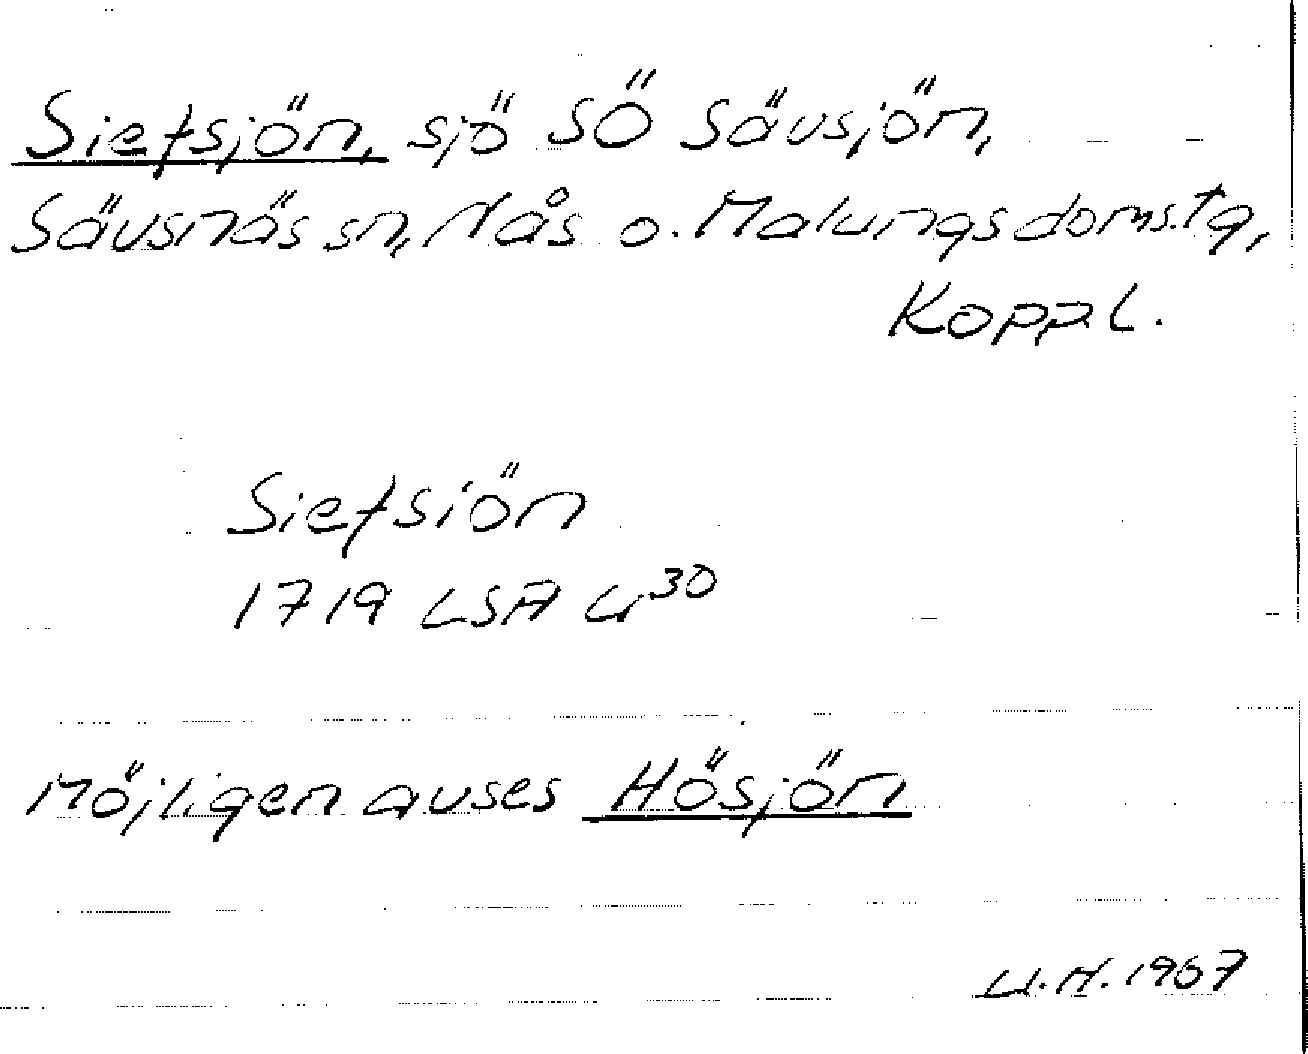 Siefsjön, sjö SÖ Sävsjön,
Sävsnäs sn, Nås o. Malungs doms.tg,
Koppl.
Siefsiön
1719 LSA U³⁰
Möjligen avses Hösjön
U.H. 1967